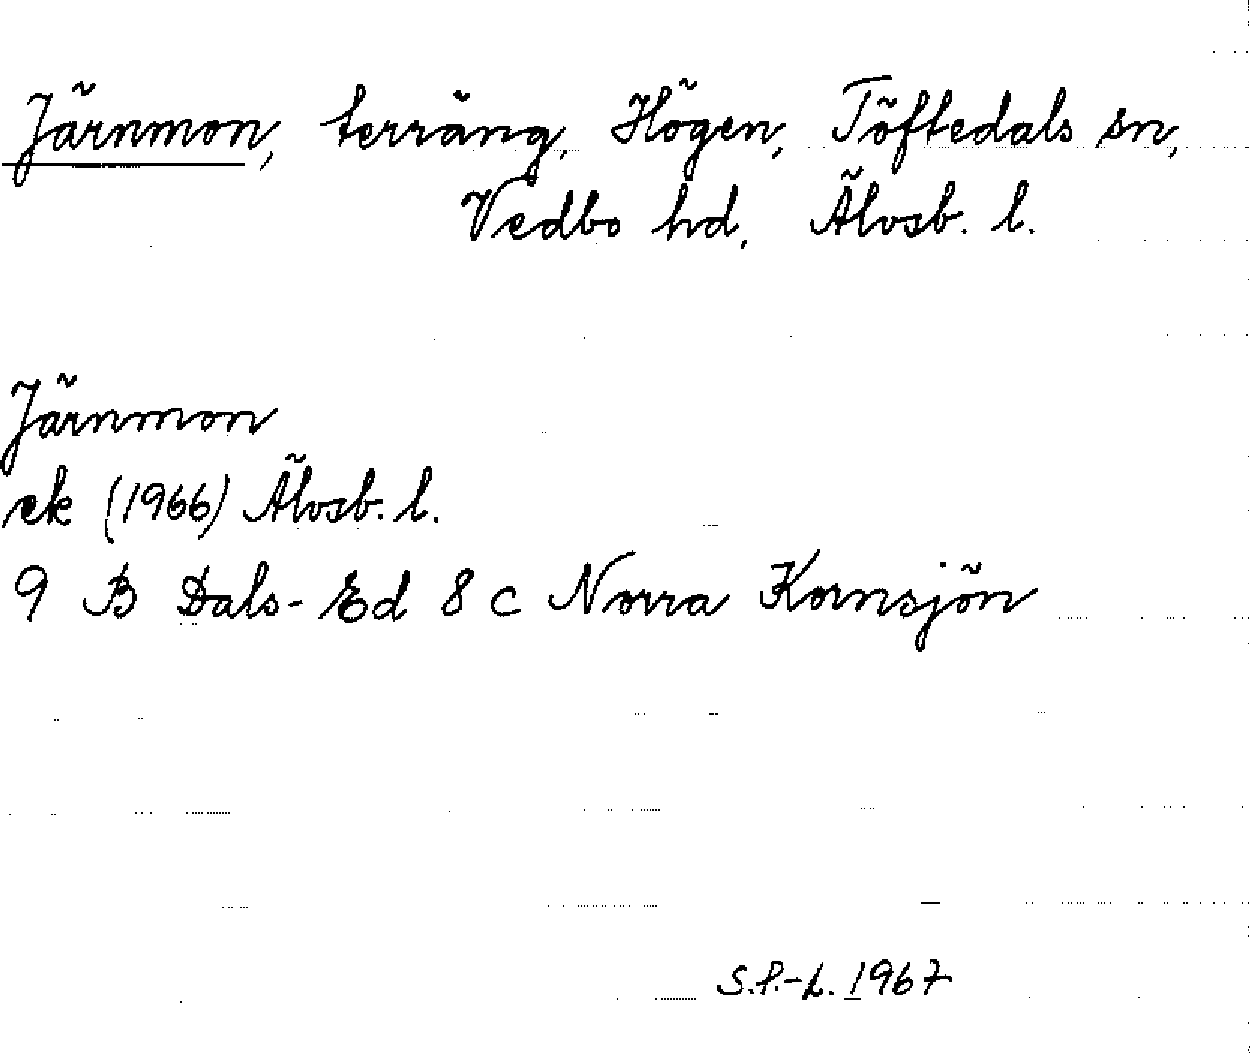 Järnmon, terräng, Högen, Töftedals sn,
Vedbo hd, Älvsb. l.
Järnmon
ek (1966) Älvsb. l.
9 B Dals-Ed 8 c Norra Kornsjön
S.P.-L. 1967